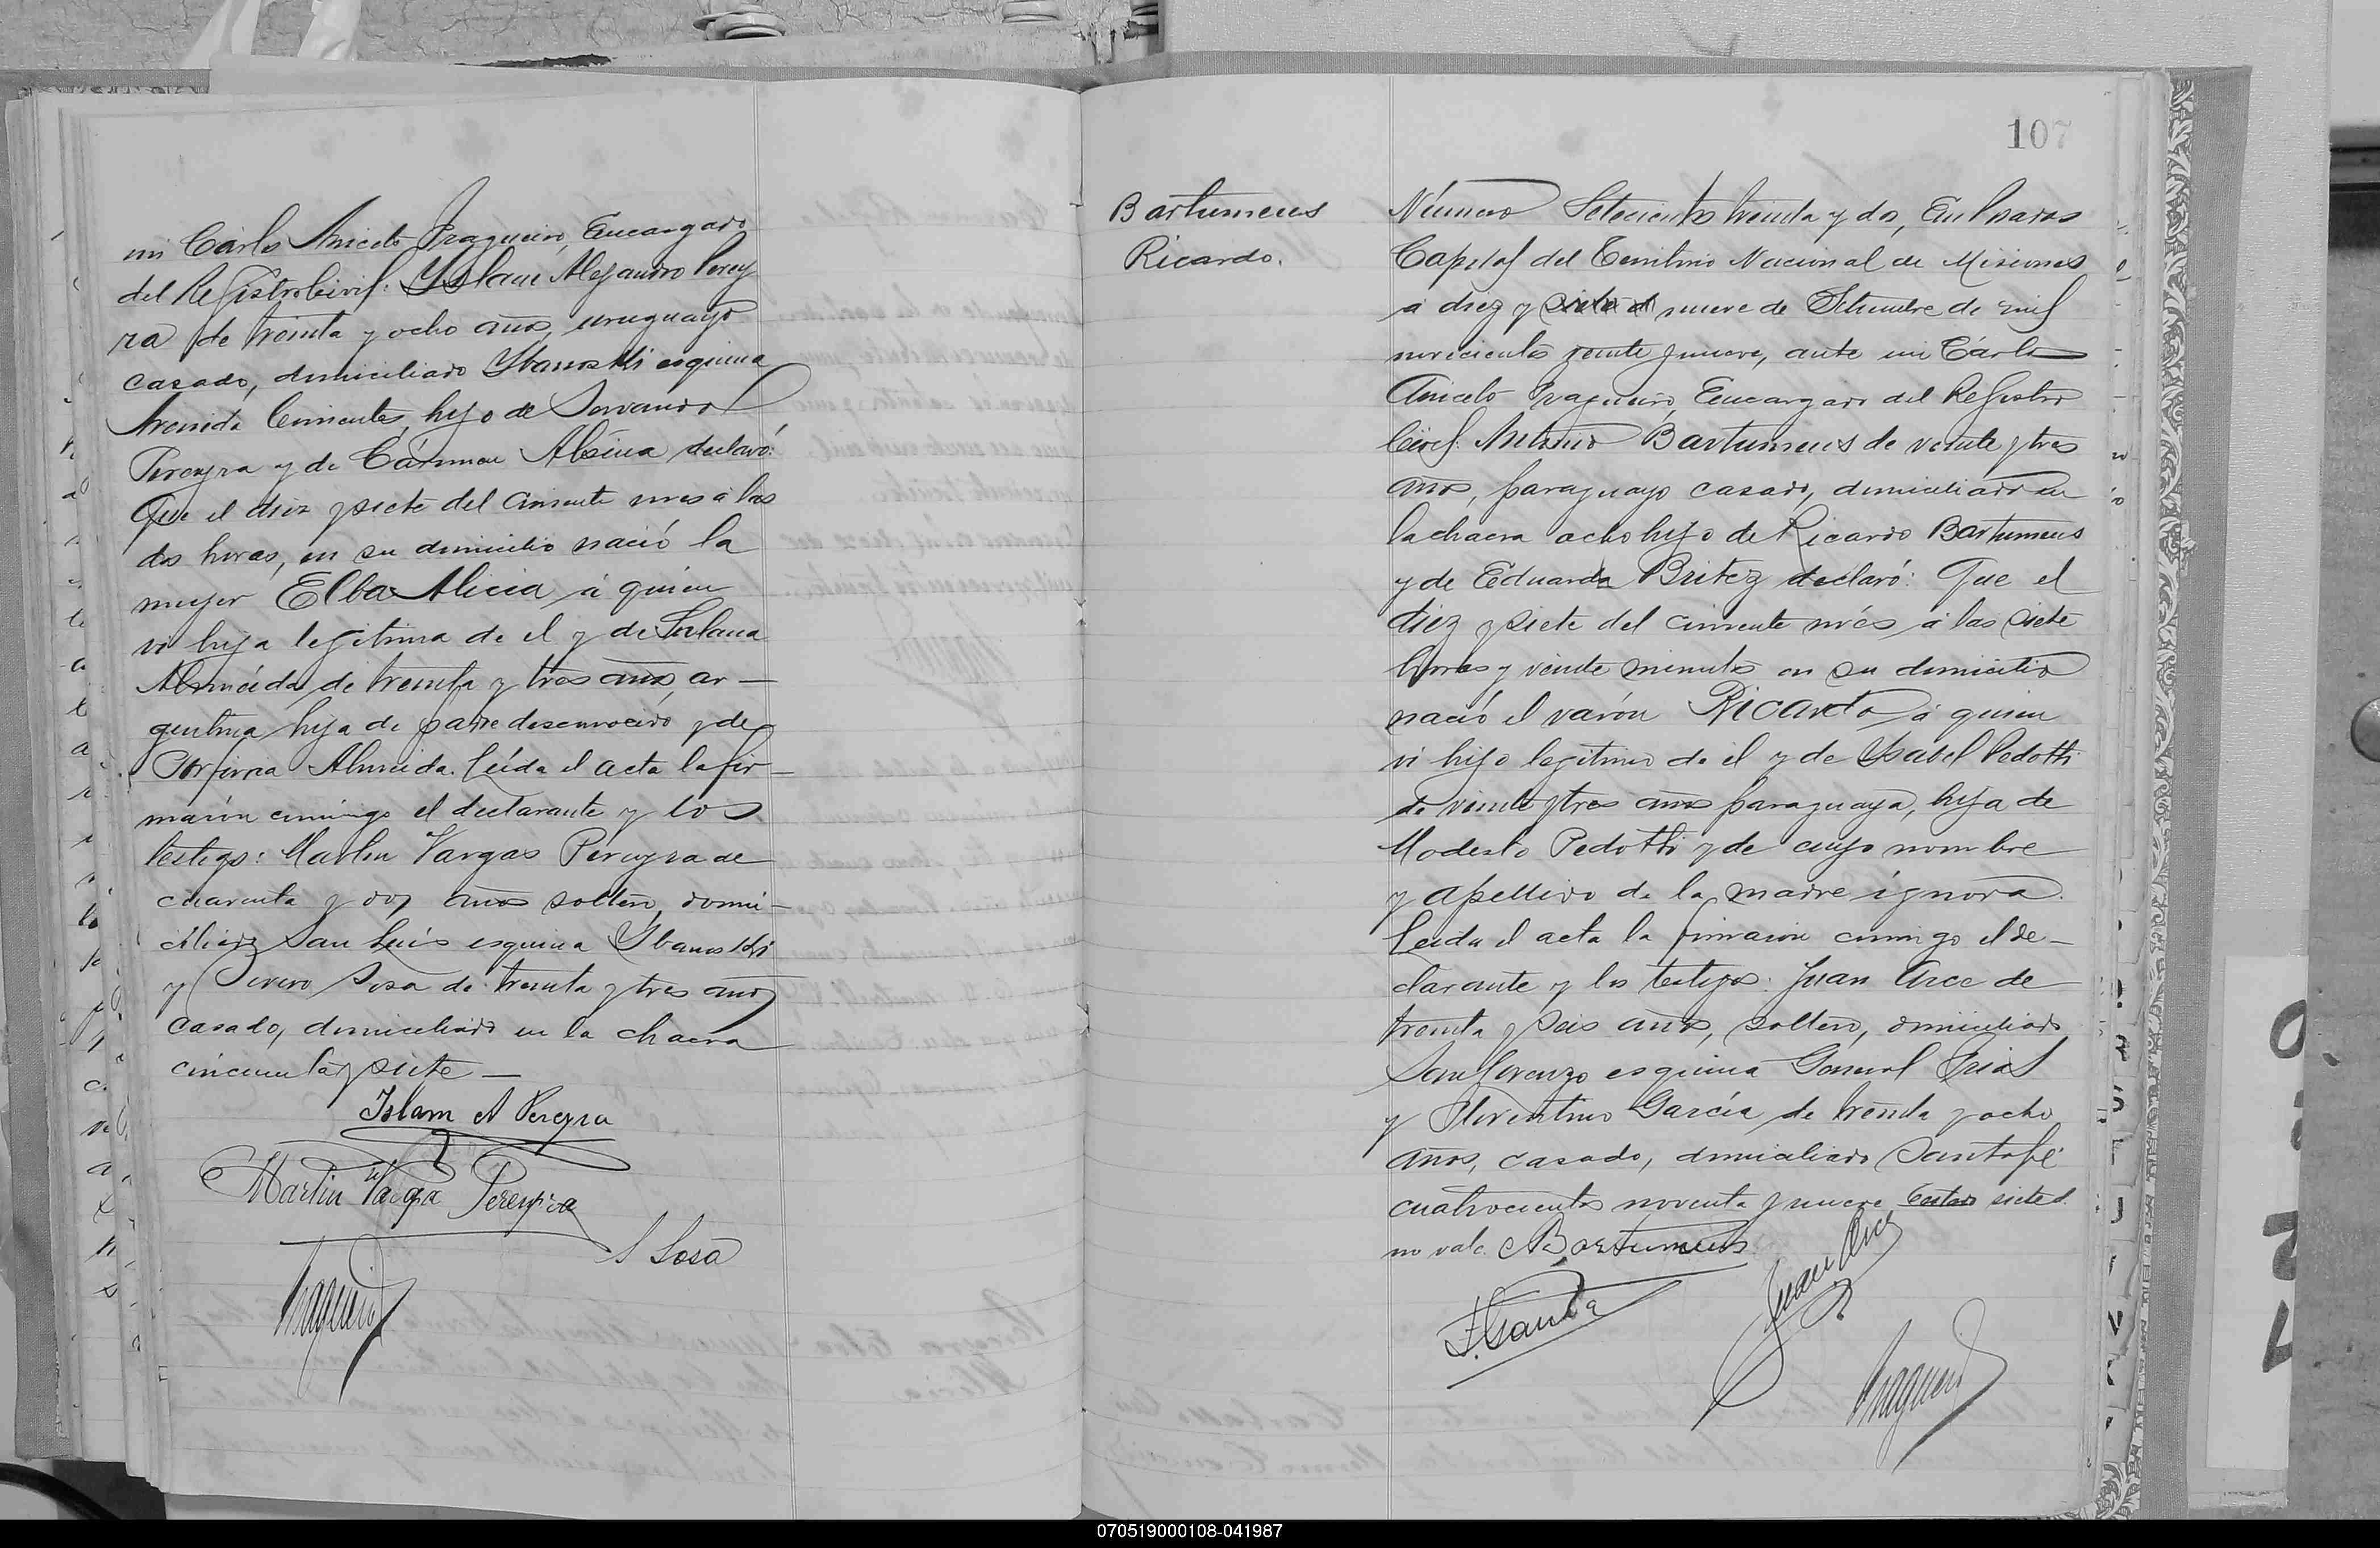 mi Cárlos Aniceto Fragueiro, Encargado
del Registro Civil: Yslam Alejandro Perey
ra de treinta y ocho años, uruguayo
casado, domiciliado Ybanoski esquina
Avenida Corrientes, hijo de Servando
Pereyra y de Cármen Alsina declaró:
Que el diez y siete del corriente mes á las
dos horas, en su domicilio nació la
mujer Elba Alicia á quien
vi hija legitima de el y de
Almeida de treinta y tres años, ar—
gentina hija de padre desconocido y de
Porfiria Almeida. Leída el acta la fir—
marón conmigo el declarante y los
testigos: Martin Vargas Pereyra de
cuarenta y dos años soltero, domi—
ciliado San Luis esquina Ybanoski
y Severo Sosa de treinta y tres años
casado, domiciliado en la chacra
cincuenta y siete—
Islam A Pereyra
Martin Varga Pereyra
S Sosa
Fragueiro
107
Bartumeus
Ricardo.
Número Setecientos treinta y dos, En Posadas
Capital del Territorio Nacional de Misiones
á diez y nueve de Setiembre de mil
novecientos veinte y nueve, ante mi Cárlos
Aniceto Fragueiro, Encargado del Registro
Civil: Antonio Bartumeus de veinte y tres
años, paraguayo casado, domiciliado en
la chacra ocho hijo de Ricardo Bartumeus
y de Eduarda Britez declaró: Que el
diez y siete del corriente més á las siete
horas y veinte minutos en su domicilio
nació el varón Ricardo á quien
vi hijo legitimo de el y de Ysabel Pedotti
de veinte y tres años paraguaya, hija de
Modesto Pedotti y de cuyo nombre
y apellido de la madre ignora.
Leida el acta la firmaron conmigo el de—
clarante y los testigos: Juan Arce de
treinta y seis años, soltero, domiciliado
San Lorenzo esquina General Frias
y Florentino García de treinta y ocho
años, casado, domiciliado Santa fé
cuatrocientos noventa y nueve Testado siete d.
no vale. ABartumeus
Juan Arce
F. García
Fragueiro
070519000108-041987